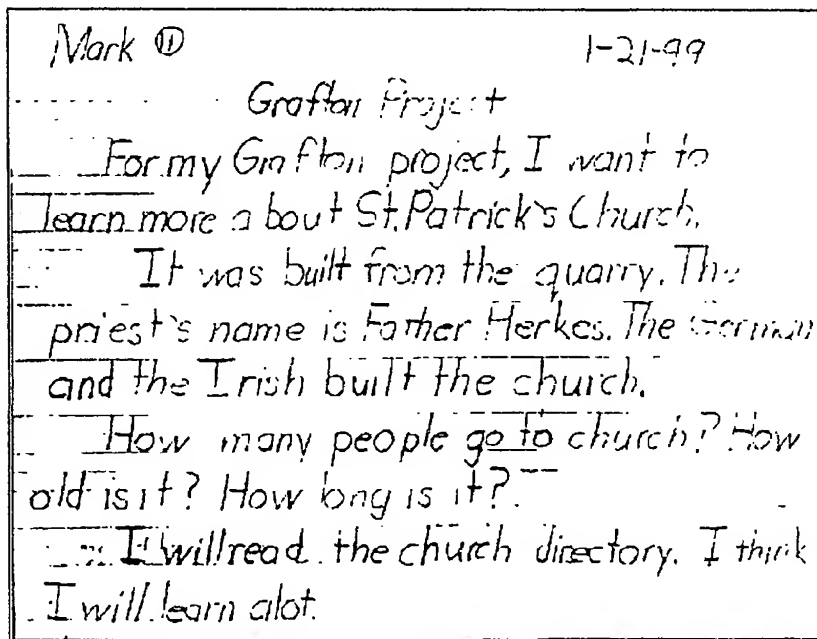 Mark ⑪ 1-21-99
Grafton Project
For my Grafton project, I want to
learn more about St. Patrick's Church.
It was built from the quarry. The
priest's name is Father Herkes. The German
and the Irish built the church.
How many people go to church? How
old is it? How long is it?
I will read the church directory. I think
I will learn alot.